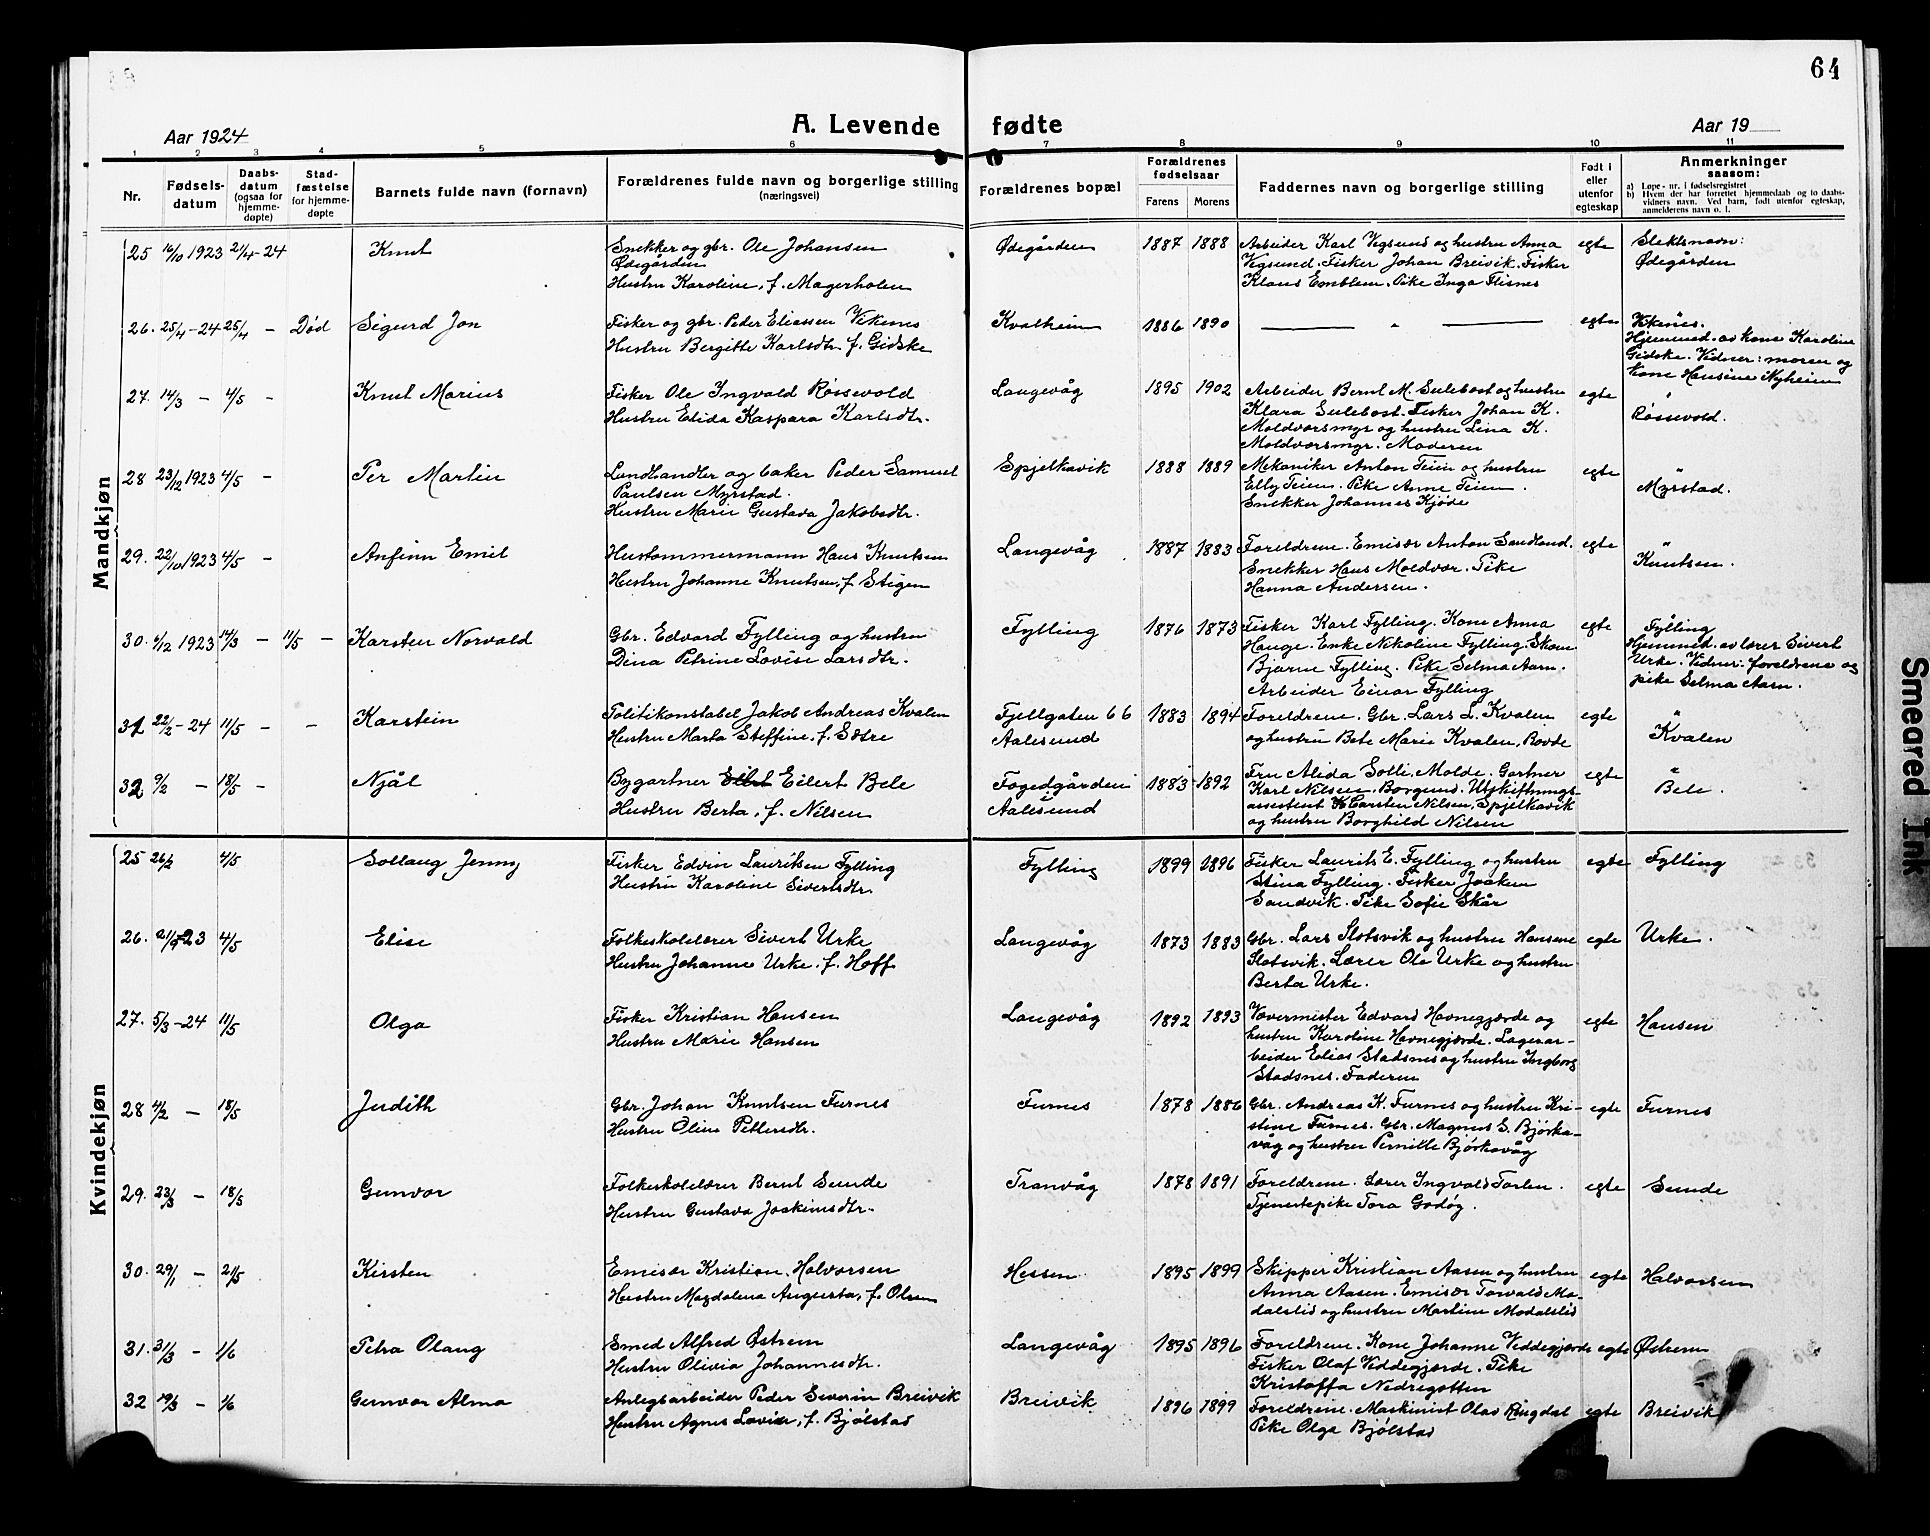 64
Aar 1924
A. Levende fødte
Aar 19
1 2 3 4 5 6 7 8 9 10 11
Nr.
Fødsels-
datum
Daabs-
datum
(ogsaa for
hjemme-
døpte)
Stad-
fæstelse
for hjemme-
døpte
Barnets fulde navn (fornavn)
Forældrenes fulde navn og borgerlige stilling
(næringsvei)
Forældrenes bopæl
Forældrenes
fødselsaar
Farens Morens
Faddernes navn og borgerlige stilling
Født i
eller
utenfor
egteskap
Anmerkninger
saasom:
a) Løpe-nr. i fødselsregistret
b) Hvem der har forrettet hjemmedaab og to daabs-
vidners navn. Ved barn, født utenfor egteskap,
anmelderens navn o. l.
Mandkjøn
25 16/10 1923 21/4-24 Knut
Snekker og gbr. Ole Johansen
Ødegården
Hustru Karoline, f. Magerholm
Ødegården 1887 1888
Arbeider Karl Vegsund og hustru Anna
Vegsund. Fisker Johan Breivik. Fisker
Klaus Emblem. Pike Inga Flisnes
egte
Slektsnavn:
Ødegården
26. 25/4-24 25/4 - Død Sigurd Jon
Fisker og gbr. Peder Eliassen Vikenes
Hustru Bergitte Karlsdtr. f. Gidske
Kvalheim 1886 1890 — " —
egte
Vikenes.
Hjemmed. av kone Karoline
Gidske. Vidner: moren og
kone Hansine Nyheim
27. 14/3 - 4/5 - Knut Marius
Fisker Ole Ingvald Røssevold
Hustru Elida Kaspara Karlsdtr.
Langevåg 1895 1902
Arbeider Bernt M. Sulebost og hustru
Klara Sulebost. Fisker Johan K.
Moldværsmyr og hustru Lina K.
Moldværsmyr. Moderen
egte
"
Røssevold.
28 23/12 1923 4/5 - Per Martin
Landhandler og baker Peder Samuel
Paulsen Myrstad.
Hustru Marie Gustava Jakobsdtr.
Spjelkavik 1888 1889
Mekaniker Anton Teien og hustru
Elly Teien. Pike Anne Teien.
Snekker Johannes Kjøde
egte
"
Myrstad.
29. 22/10 1923 4/5 - Anfinn Emil
Hustømmermann Hans Knutsen
Hustru Johanne Knutsen, f. Stigen
Langevåg 1887 1883
Foreldrene. Emisær Anton Sandland.
Snekker Hans Moldvær. Pike
Hanna Andersen.
egte
"
Knutsen.
30. 6/12 1923 14/3 - 11/5 - Karsten Norvald
Gbr. Edvard Fylling og hustru
Dina Petrine Lovise Larsdtr.
Fylling 1876 1873
Fisker Karl Fylling. Kone Anna
Hauge. Enke Nikoline Fylling. Skom.
Bjarne Fylling. Pike Selma Aarn.
Arbeider Einar Fylling
egte
Fylling
Hjemmed. av lærer Sivert
Urke. Vidner: foreldrene og
pike Selma Aarn.
31 22/2-24 11/5 - - Karstein
Politikonstabel Jakob Andreas Kvalen
Hustru Marta Steffine, f. Sætre
Fjellgaten 66
Aalesund 1883 1894
Foreldrene. Gbr. Lars L. Kvalen
og hustru Bete Marie Kvalen, Rovde
egte
"
Kvalen
32 9/2 - 18/5 - Njål
Bygartner Eilert Bele
Hustru Berta, f. Nilsen
Fogedgården
Aalesund 1883 1892
Fru Alida Solli, Molde. Gartner
Karl Nilsen, Borgund. Utskiftnings-
assistent Karsten Nilsen, Spjelkavik
og hustru Borghild Nilsen
egte
"
Bele.
Kvindekjøn
25 26/2 4/5 Sollaug Jenny
Fisker Edvin Lauritsen Fylling
Hustru Karoline Sivertsdtr.
Fylling 1899 1896
Fisker Laurits E. Fylling og hustru
Stina Fylling. Fisker Joakim
Sandvik. Pike Sofie Skår
egte Fylling
26. 4/5 Elise
Folkeskolelærer Sivert Urke
Hustru Johanne Urke. f. Hoff
Langevåg 1873 1883
Gbr. Lars Slotsvik og hustru Hansine
Slotsvik. Lærer Ole Urke og hustru
Berta Urke.
egte Urke.
27. 5/3-24 11/5 Olga
Fisker Kristian Hansen
Hustru Marie Hansen
Langevåg 1892 1893
Vævermister Edvard Havnegjærde og
hustru Karoline Havnegjærde. Lagerar-
beider Elias Stadsnes og hustru Ingborg
Stadsnes. Faderen
egte Hansen
28 4/2 - 18/5 Judith
Gbr. Johan Knutsen Furnes
Hustru Oline Pettersdtr.
Furnes 1878 1886
Gbr. Andreas K. Furnes og hustru Kri-
stine Furnes. Gbr. Magnus S. Bjørka-
våg og hustru Pernille Bjørkavåg
egte Furnes
29. 23/3 - 18/5 Gunvor
Folkeskolelærer Bernt Sunde
Hustru Gustava Joakimsdtr.
Tranvåg 1878 1891
Foreldrene. Lærer Ingvald Torlen.
Tjenestepike Tora Godøy.
egte Sunde
30. 29/1 - 21/5 Kirsten
Emisær Kristian Halvorsen
Hustru Magdalena Augusta, f. Olsen
Hessen 1895 1899
Skipper Kristian Aasen og hustru
Anna Aasen. Emisær Torvald Mo-
dalslid og hustru Martine Modalslid
egte Halvorsen
31. 31/3 - 1/6 Petra Olaug
Smed Alfred Østrem
Hustru Olivia Johannesdtr.
Langevåg 1895 1896
Foreldrene. Kone Johanne Veddegjærde
Fisker Olaf Veddegjærde. Pike
Kristoffa Nedregotten
egte Østrem
32 19/3 - 1/6 Gunvor Alma
Anlegsarbeider Peder Severin Breivik
Hustru Agnes Lovise, f. Bjølstad
Breivik 1896 1899
Foreldrene. Maskinist Olav Ringdal
Pike Olga Bjølstad
egte Breivik
Smeared Ink